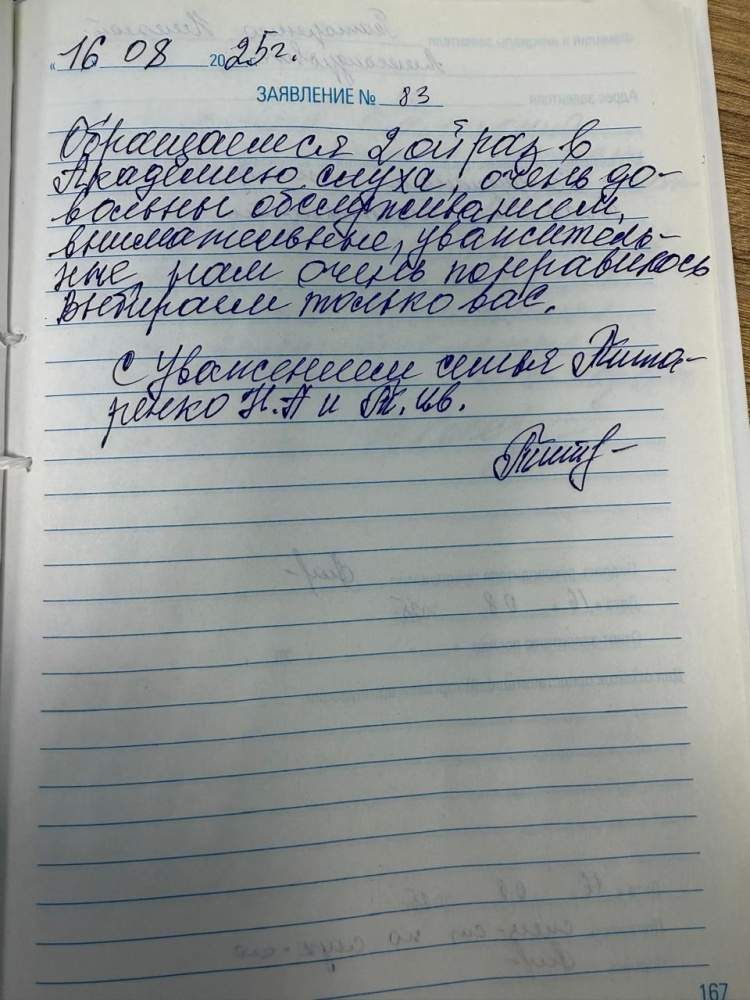 « 16 08 2025г.
ЗАЯВЛЕНИЕ № 83
Обращаемся 2ой раз в
Академию слуха, очень до-
вольны обслуживанием,
внимательные, уважитель-
ные, нам очень понравилось
выбираем только вас.
С Уважением семья Тита-
ренко Н.А и Т. Ив.
167